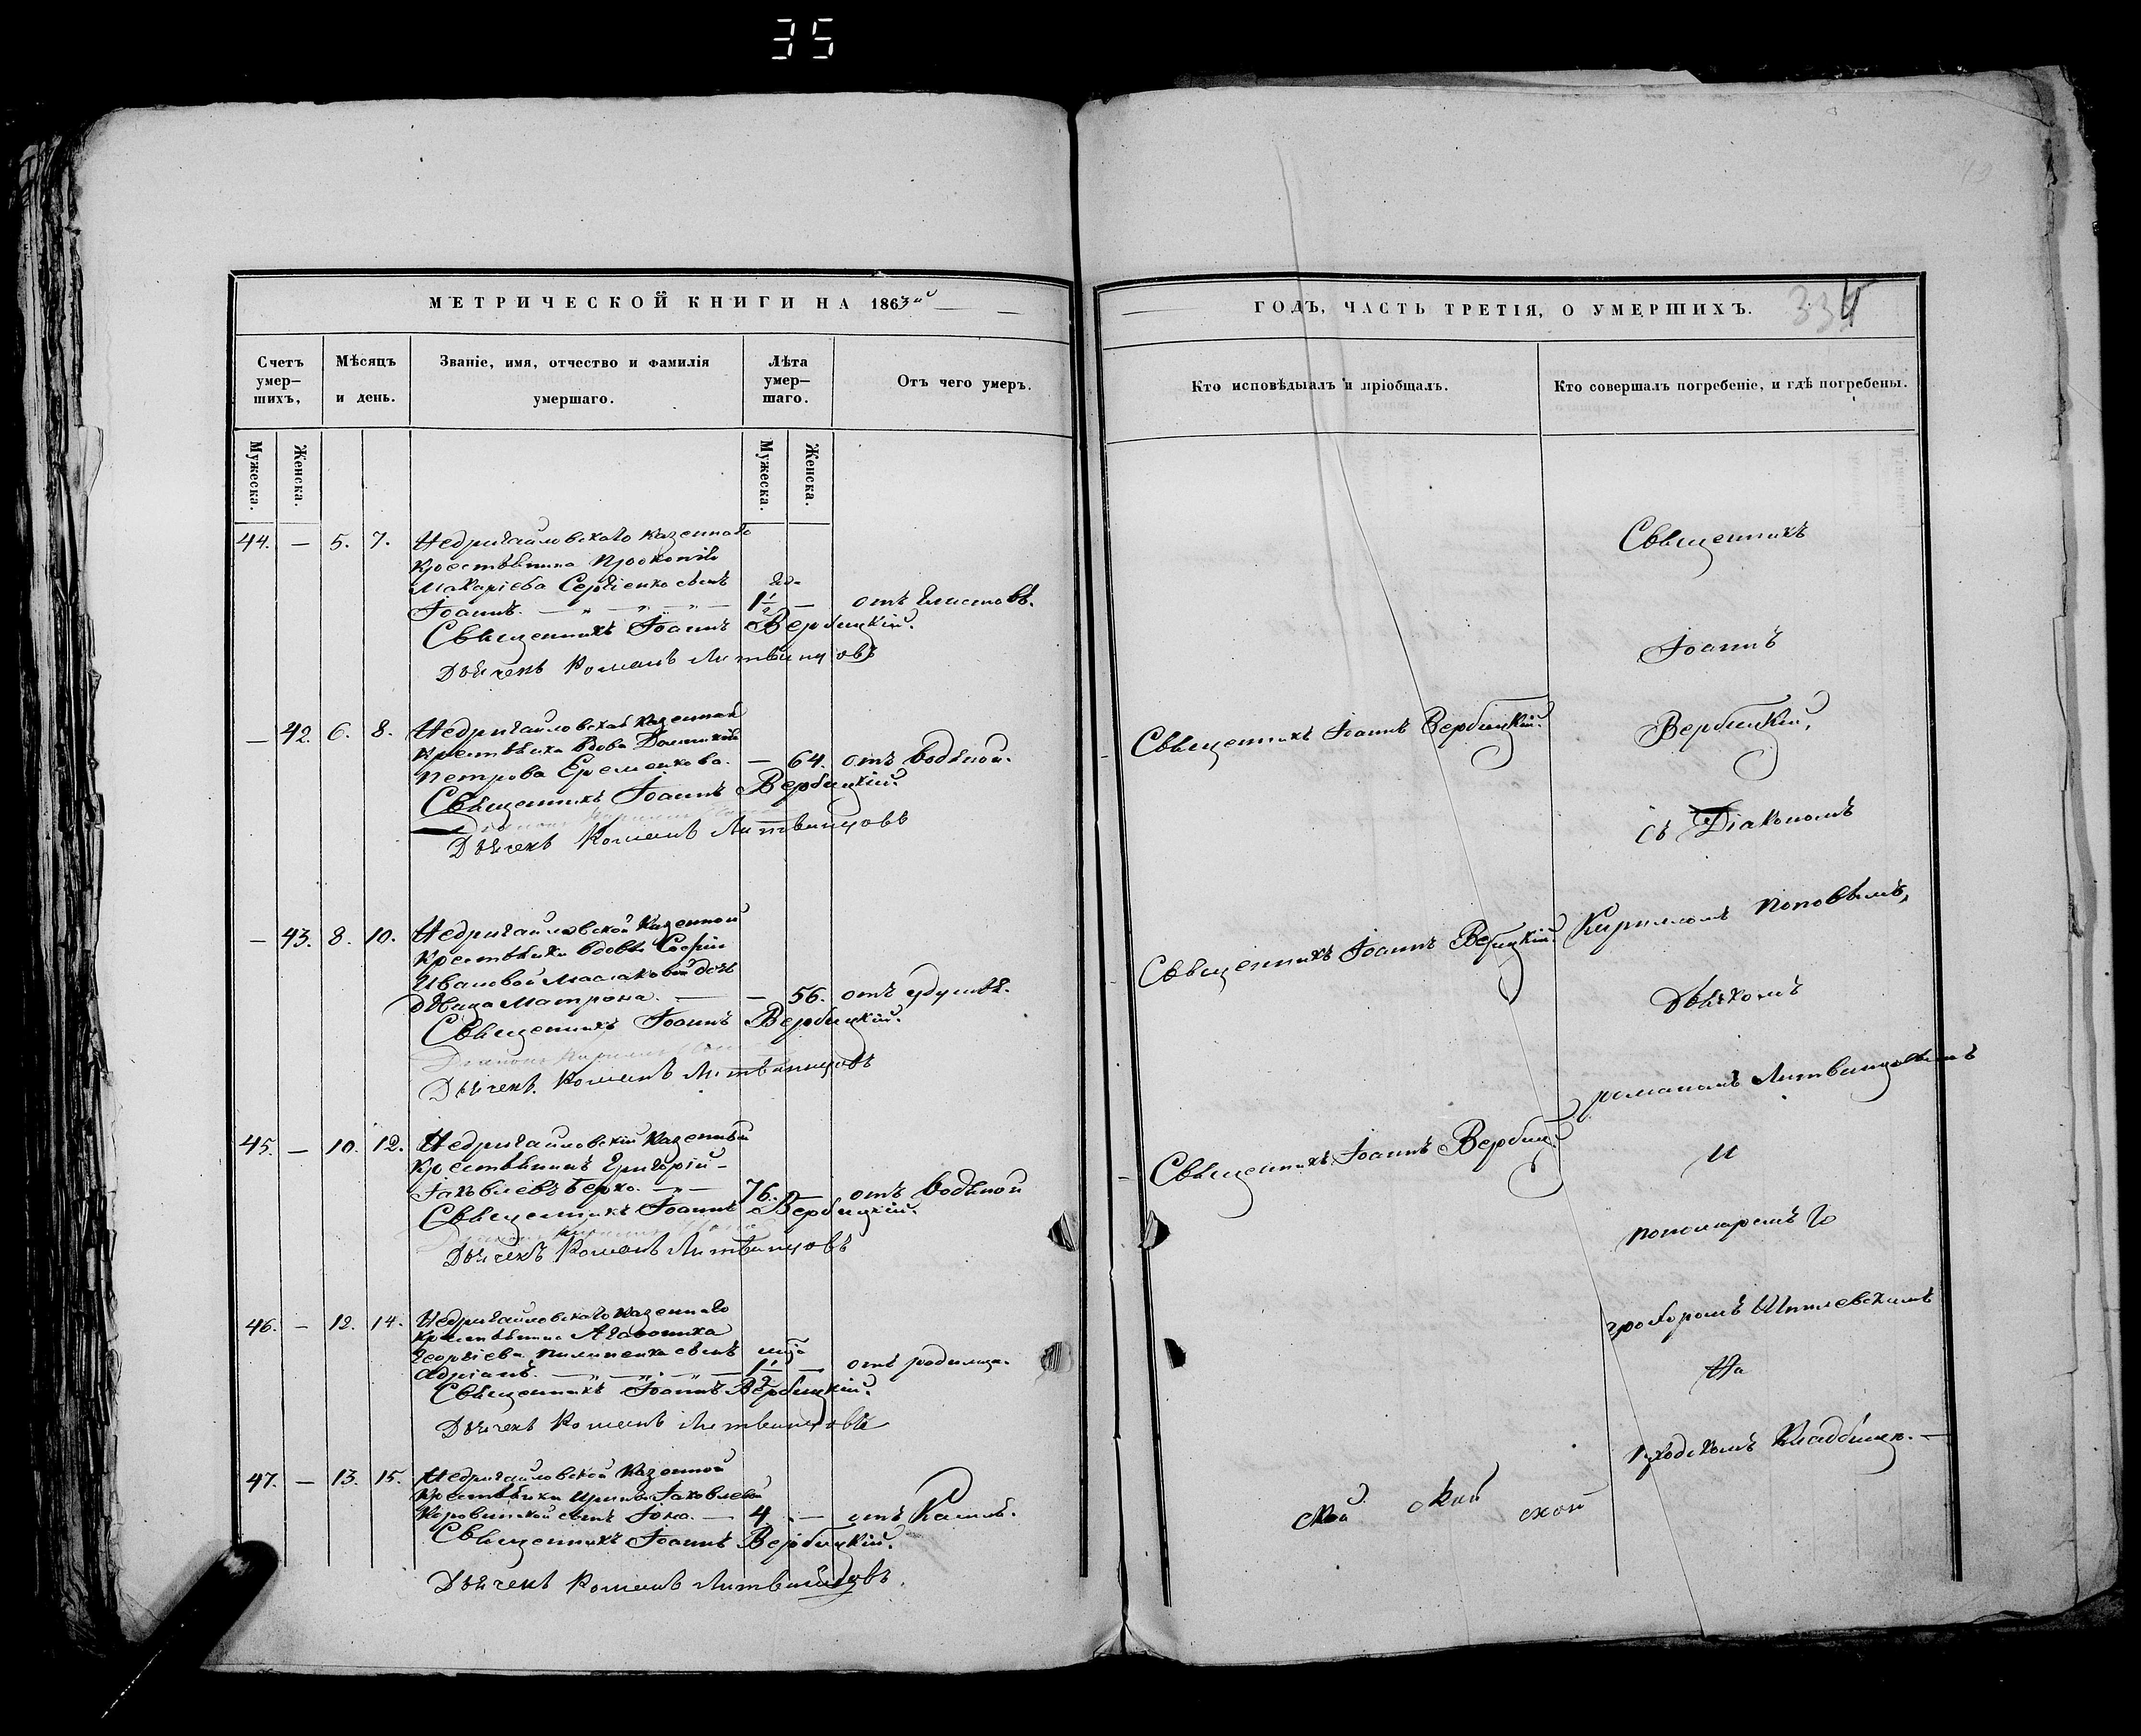 35
МЕТРИЧЕСКОЙ КНИГИ НА 1863й
Счетъ умер-шихъ,
Мѣсяцъ и день.
Званіе, имя, отчество и фамилія умершаго.
Лѣта умер-шаго.
Отъ чего умеръ.
Мужеска.
Женска.
Мужеска.
Женска.
44. — 5. 7. Недригайловскаго казеннаго
крестьянина Прокопія
Макаріева Сергіенка сынъ
Іоаннъ. 1 1/2 — отъ глистовъ.
Священникъ Іоаннъ Вербицкій.
Дьячекъ Романъ Литвинцовъ
— 42. 6. 8. Недригайловская казенная
крестьянка вдова Домникія
Петрова Еременкова. — 64. отъ водяной.
Священникъ Іоаннъ Вербицкій.
Дьячекъ Романъ Литвинцовъ
— 43. 8. 10. Недригайловской казенной
крестьянки вдовы Софіи
Ивановой Маслаковой дочь
дѣвица Матрона. — 56. отъ удушья.
Священникъ Іоаннъ Вербицкій.
Діаконъ Кириллъ
Дьячекъ Романъ Литвинцовъ
45. — 10. 12. Недригайловскій казенный
крестьянинъ Григорій
Іаковлевъ Берко. 76. — отъ водяной
Священникъ Іоаннъ Вербицкій.
Дьячекъ Романъ Литвинцовъ
46. — 12. 14. Недригайловскаго казеннаго
крестьянина Агафоника
Георгіева Пилипенка сынъ
Адріанъ. 1 1/2 — отъ родимца.
Священникъ Іоаннъ Вербицкій.
Дьячекъ Романъ Литвинцовъ
47. — 13. 15. Недригайловской казенной
крестьянки Ирины Іаковлевой
Коровянской сынъ Іона. — 4. — отъ кашля.
Священникъ Іоаннъ Вербицкій.
Дьячекъ Романъ Литвинцовъ.
ГОДЪ, ЧАСТЬ ТРЕТІЯ, О УМЕРШИХЪ.
Кто исповѣдывалъ и пріобщалъ.
Кто совершалъ погребеніе, и гдѣ погребены.
Священникъ Іоаннъ Вербицкій.
Священникъ Іоаннъ Вербицкій.
Священникъ Іоаннъ Вербиц
Священникъ
Іоаннъ
Вербицкій,
съ Діакономъ
Кирилломъ Поповымъ,
Дьячкомъ
Романомъ Литвинцовымъ
и
пономаремъ
на
кладбищѣ. —
ской ской ской